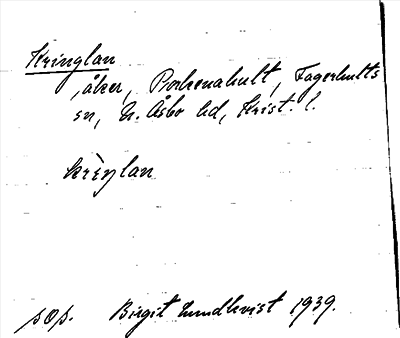 Kringlan
, åker, Porkenahult, Fagerhults
sn, N. Åsbo hd, Krist. l.
krìŋlan
sOp. Birgit Lundkvist 1939.